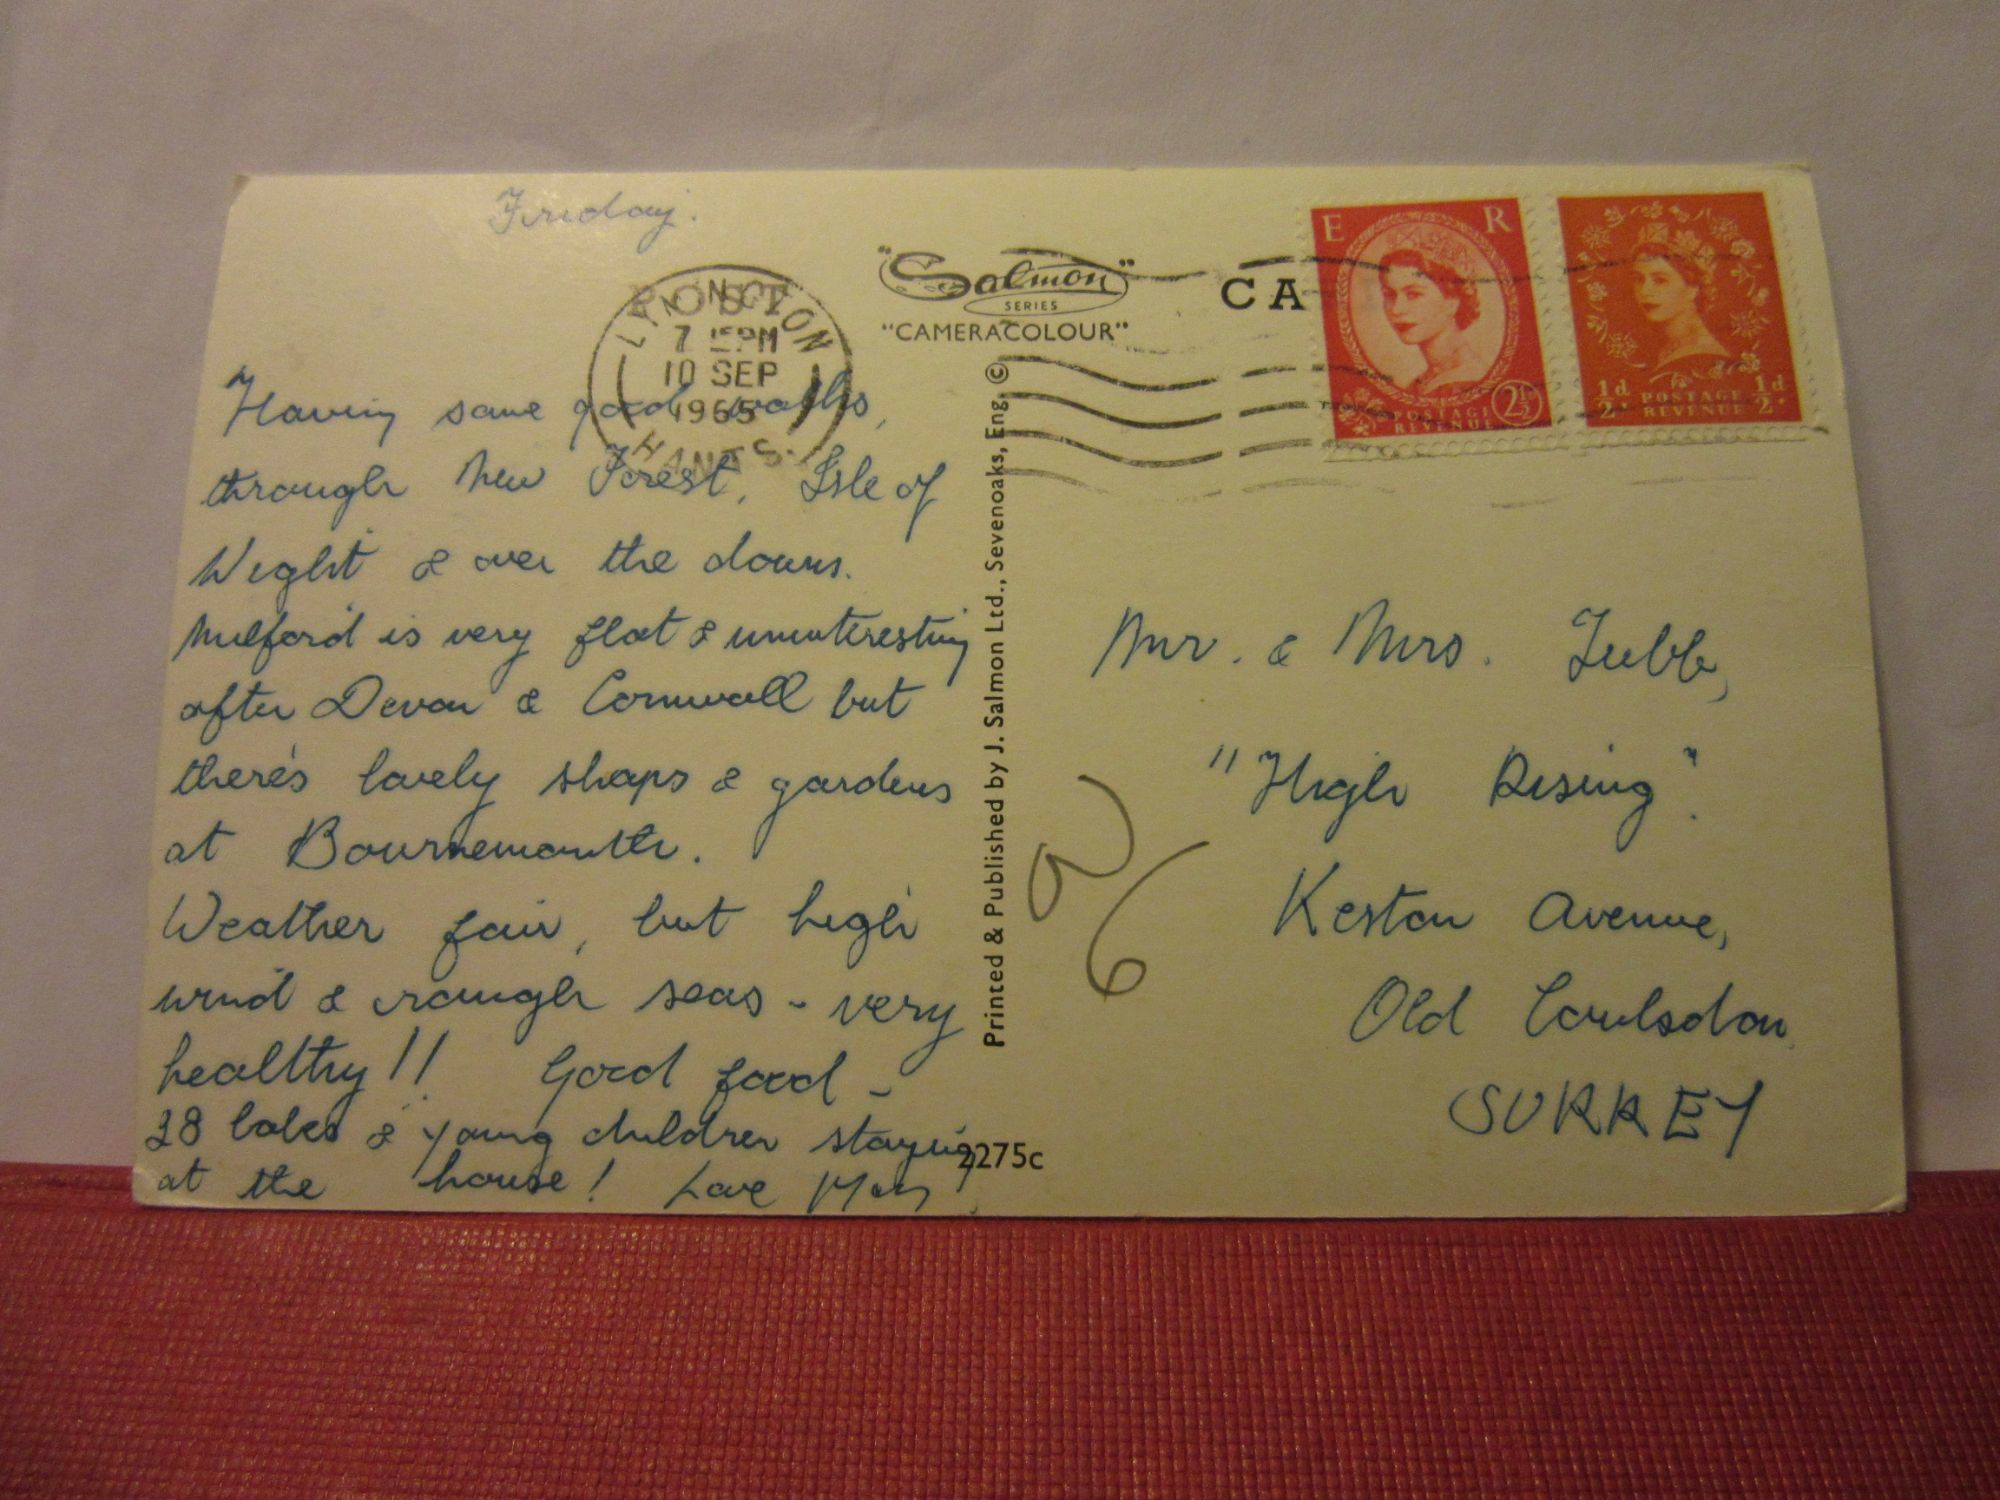 Friday.
Having some good walks,
through New Forest, Isle of
Wight & over the downs.
Milford is very flat & uninteresting
after Devon & Cornwall but
there's lovely shops & gardens
at Bournemouth.
Weather fair, but high
wind & rough seas - very
healthy!! Good food -
38 babes & young children staying
at the house! Love
POST
LYMINGTON
7 15PM
10 SEP
1965
HANTS.
"Salmon"
SERIES
"CAMERACOLOUR"
CA
E R
POSTAGE
REVENUE
2½
½d. POSTAGE ½d.
REVENUE
Printed & Published by J. Salmon Ltd., Sevenoaks, Eng. ©
2275c
2/6
Mr. & Mrs. Tubb,
"High Rising".
Keston Avenue,
Old Coulsdon,
SURREY